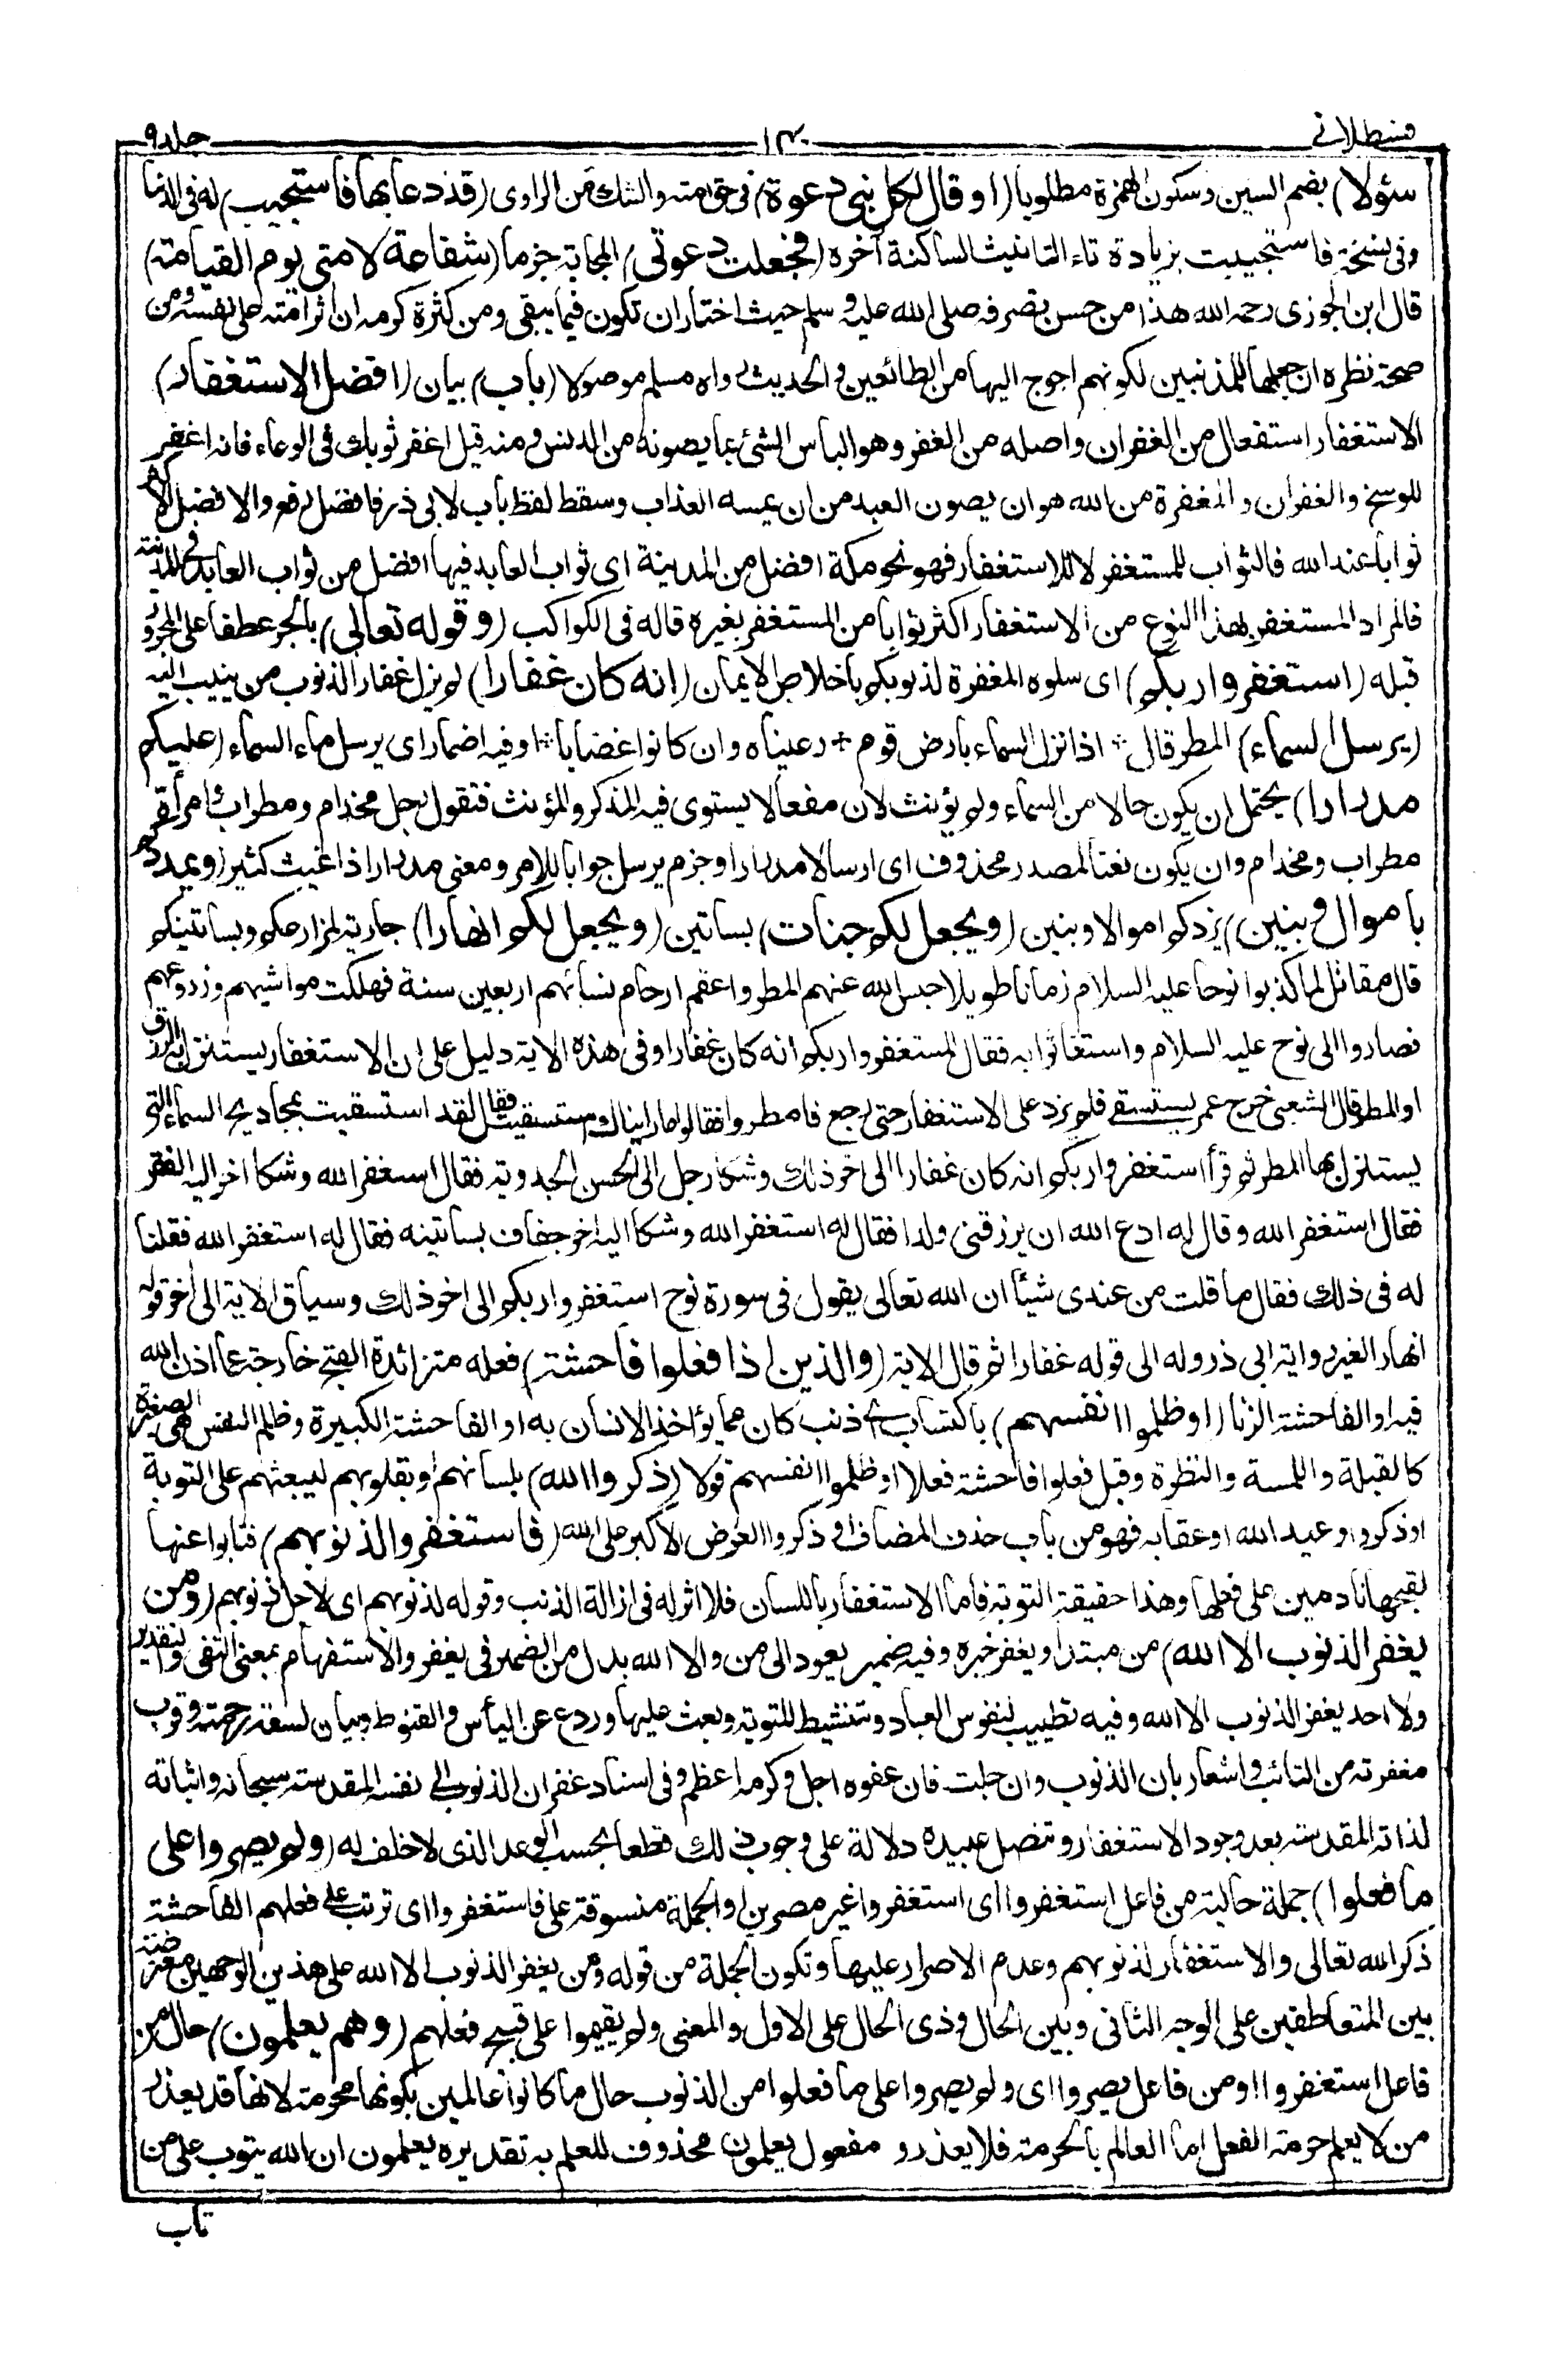 قسطلانى ١٣٠ جلد ٩
سئولا) بضم السين وسكون الهمزة مطلوبا (او قال لكل نبى دعوة) فى حق امته والشك من الراوى (قد دعا بها فاستجيب) له فى الدنيا
وفى نسخة فاستجيبت بزيادة تاء التانيث الساكنة آخره (فجعلت دعوتى) المجابة جزما (شفاعة لامتى يوم القيامة)
قال ابن الجوزى رحمه الله هذا من حسن تصرفه صلى الله عليه وسلم حيث اختار ان تكون فيما يبقى ومن كثرة كرمه ان اثر امته على نفسه ومن
صحة نظره ان جعلها للمذنبين لكونهم احوج اليها من الطائعين والحديث رواه مسلم موصولا (باب) بيان (افضل الاستغفار)
الاستغفار استفعال من الغفران واصله من الغفر وهو الباس الشئ بما يصونه من الدنس ومنه قيل اغفر ثوبك فى الوعاء فانه اغفر
للوسخ والغفران والمغفرة من الله هو ان يصون العبد من ان يمسه العذاب وسقط لفظ باب لابى ذر فافضل رفع والافضل الاكثر
ثوابا عند الله فالثواب للمستغفر لا للاستغفار فهو نحو مكة افضل من المدينة اى ثواب العابد فيها افضل من ثواب العابد فى المدينة
فالمراد المستغفر بهذا النوع من الاستغفار اكثر ثوابا من المستغفر بغيره قاله فى الكواكب (وقوله تعالى) بالجر عطفا على المجرور
قبله (استغفروا ربكم) اى سلوه المغفرة لذنوبكم باخلاص الايمان (انه كان غفارا) لم يزل غفار الذنوب من ينيب اليه
(يرسل السماء) المطر قال * اذا نزل السماء بارض قوم + رعيناه وان كانوا غضابا * او فيه اضمار اى يرسل ماء السماء (عليكم
مدرارا) يحتمل ان يكون حالا من السماء ولم يؤنث لان مفعالا يستوى فيه المذكر والمؤنث فتقول رجل مخدام ومطراب وامرأة
مطراب ومخدام وان يكون نعتا لمصدر محذوف اى ارسالا مدرارا وجزم يرسل جوابا للامر ومعنى مدرارا ذا غيث كثير (ويمددكم
باموال وبنين) يزدكم اموالا وبنين (ويجعل لكم جنات) بساتين (ويجعل لكم انهارا) جارية لمزارعكم وبساتينكم
قال مقاتل لما كذبوا نوحا عليه السلام زمانا طويلا حبس الله عنهم المطر واعقم ارحام نسائهم اربعين سنة فهلكت مواشيهم وزروعهم
فصاروا الى نوح عليه السلام واستغاثوا به فقال استغفروا ربكم انه كان غفارا وفى هذه الاية دليل على ان الاستغفار يستنزل به الرزق
او المطر قال الشعبى خرج عمر يستسقى فلم يزد على الاستغفار حتى رجع فامطروا فقالوا ما رايناك استسقيت فقال لقد استسقيت بمجاديح السماء التى
يستنزل بها المطر ثم قرأ استغفروا ربكم انه كان غفارا الى اخر ذلك وشكا رجل الى الحسن الجدوبة فقال استغفر الله وشكا اخر اليه الفقر
فقال استغفر الله وقال له ادع الله ان يرزقنى ولدا فقال له استغفر الله وشكا اليه اخر جفاف بساتينه فقال له استغفر الله فقلنا
له فى ذلك فقال ما قلت من عندى شيأ ان الله تعالى يقول فى سورة نوح استغفروا ربكم الى اخر ذلك وسياق الاية الى اخر قوله
انهارا لغير رواية ابى ذر وله الى قوله غفارا ثم قال الاية (والذين اذا فعلوا فاحشة) فعلة متزائدة القبح خارجة عما اذن الله
فيه او الفاحشة الزنا (او ظلموا انفسهم) باكتساب اى ذنب كان مما يؤاخذ الانسان به او الفاحشة الكبيرة وظلم النفس هى الصغيرة
كالقبلة واللمسة والنظرة وقيل فعلوا فاحشة فعلا او ظلموا انفسهم قولا (ذكروا الله) بلسانهم او بقلوبهم ليبعثهم على التوبة
او ذكروا وعيد الله او عقابه فهو من باب حذف المضاف او ذكروا العرض الاكبر على الله (فاستغفروا لذنوبهم) فتابوا عنها
لقبحها نادمين على فعلها وهذا حقيقة التوبة فاما الاستغفار باللسان فلا اثر له فى ازالة الذنب وقوله لذنوبهم اى لاجل ذنوبهم (ومن
يغفر الذنوب الا الله) من مبتدأ ويغفر خبره وفيه ضمير يعود الى من والا الله بدل من الضمير فى يغفر والاستفهام بمعنى النفى والتقدير
ولا احد يغفر الذنوب الا الله وفيه تطييب لنفوس العباد وتنشيط للتوبة وبعث عليها وردع عن اليأس والقنوط وبيان لسعة رحمته وقرب
مغفرته من التائب واشعار بان الذنوب وان جلت فان عفوه اجل وكرمه اعظم وفى اسناد غفران الذنوب الى نفسه المقدسة سبحانه واثباته
لذاته المقدسة بعد وجود الاستغفار وتنصل عبيده دلالة على وجوب ذلك قطعا بحسب الوعد الذى لا خلف له (ولم يصروا على
ما فعلوا) جملة حالية من فاعل استغفروا اى استغفروا غير مصرين او الجملة منسوقة على فاستغفروا اى ترتب على فعلهم الفاحشة
ذكر الله تعالى والاستغفار لذنوبهم وعدم الاصرار عليها وتكون الجملة من قوله ومن يغفر الذنوب الا الله على هذين الوجهين معترضة
بين المتعاطفين على الوجه الثانى وبين الحال وذى الحال على الاول والمعنى ولم يقيموا على قبيح فعلهم (وهم يعلمون) حال من
فاعل استغفروا او من فاعل يصروا اى ولم يصروا على ما فعلوا من الذنوب حال ما كانوا عالمين بكونها محرمة لانها قد يعذر
من لا يعلم حرمة الفعل اما العالم بالحرمة فلا يعذر و مفعول يعلمون محذوف للعلم به تقديره يعلمون ان الله يتوب على من
تاب